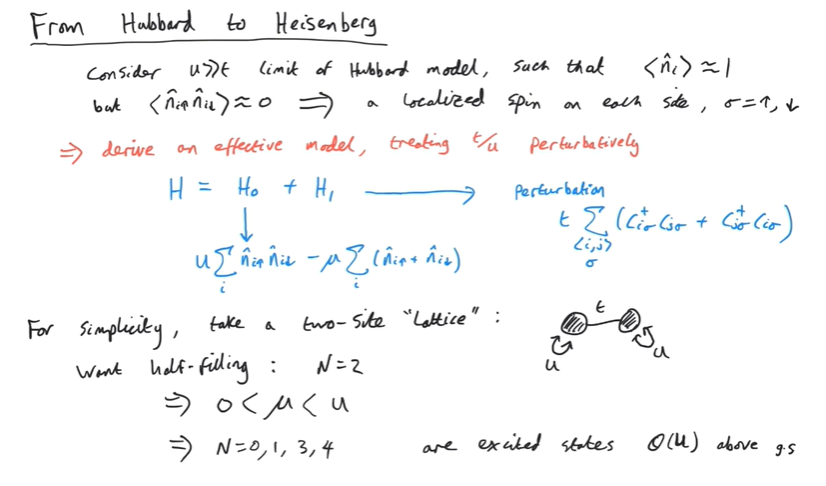 From Hubbard to Heisenberg
Consider u≫t limit of Hubbard model, such that ⟨n̂ᵢ⟩ ≈ 1
but ⟨n̂ᵢ↑n̂ᵢ↓⟩ ≈ 0 ⟹ a localized spin on each site, σ=↑,↓
⇒ derive an effective model, treating t/u perturbatively
H = H₀ + H₁ ⟶ perturbation
t ∑_{⟨i,j⟩ σ} (c†_{iσ} c_{jσ} + c†_{jσ} c_{iσ})
u ∑_i n̂ᵢ↑n̂ᵢ↓ − μ ∑_i (n̂ᵢ↑ + n̂ᵢ↓)
For simplicity, take a two-site "lattice" :
t
u u
Want half-filling : N=2
⇒ 0 < μ < u
⇒ N=0,1,3,4 are excited states O(u) above g.s